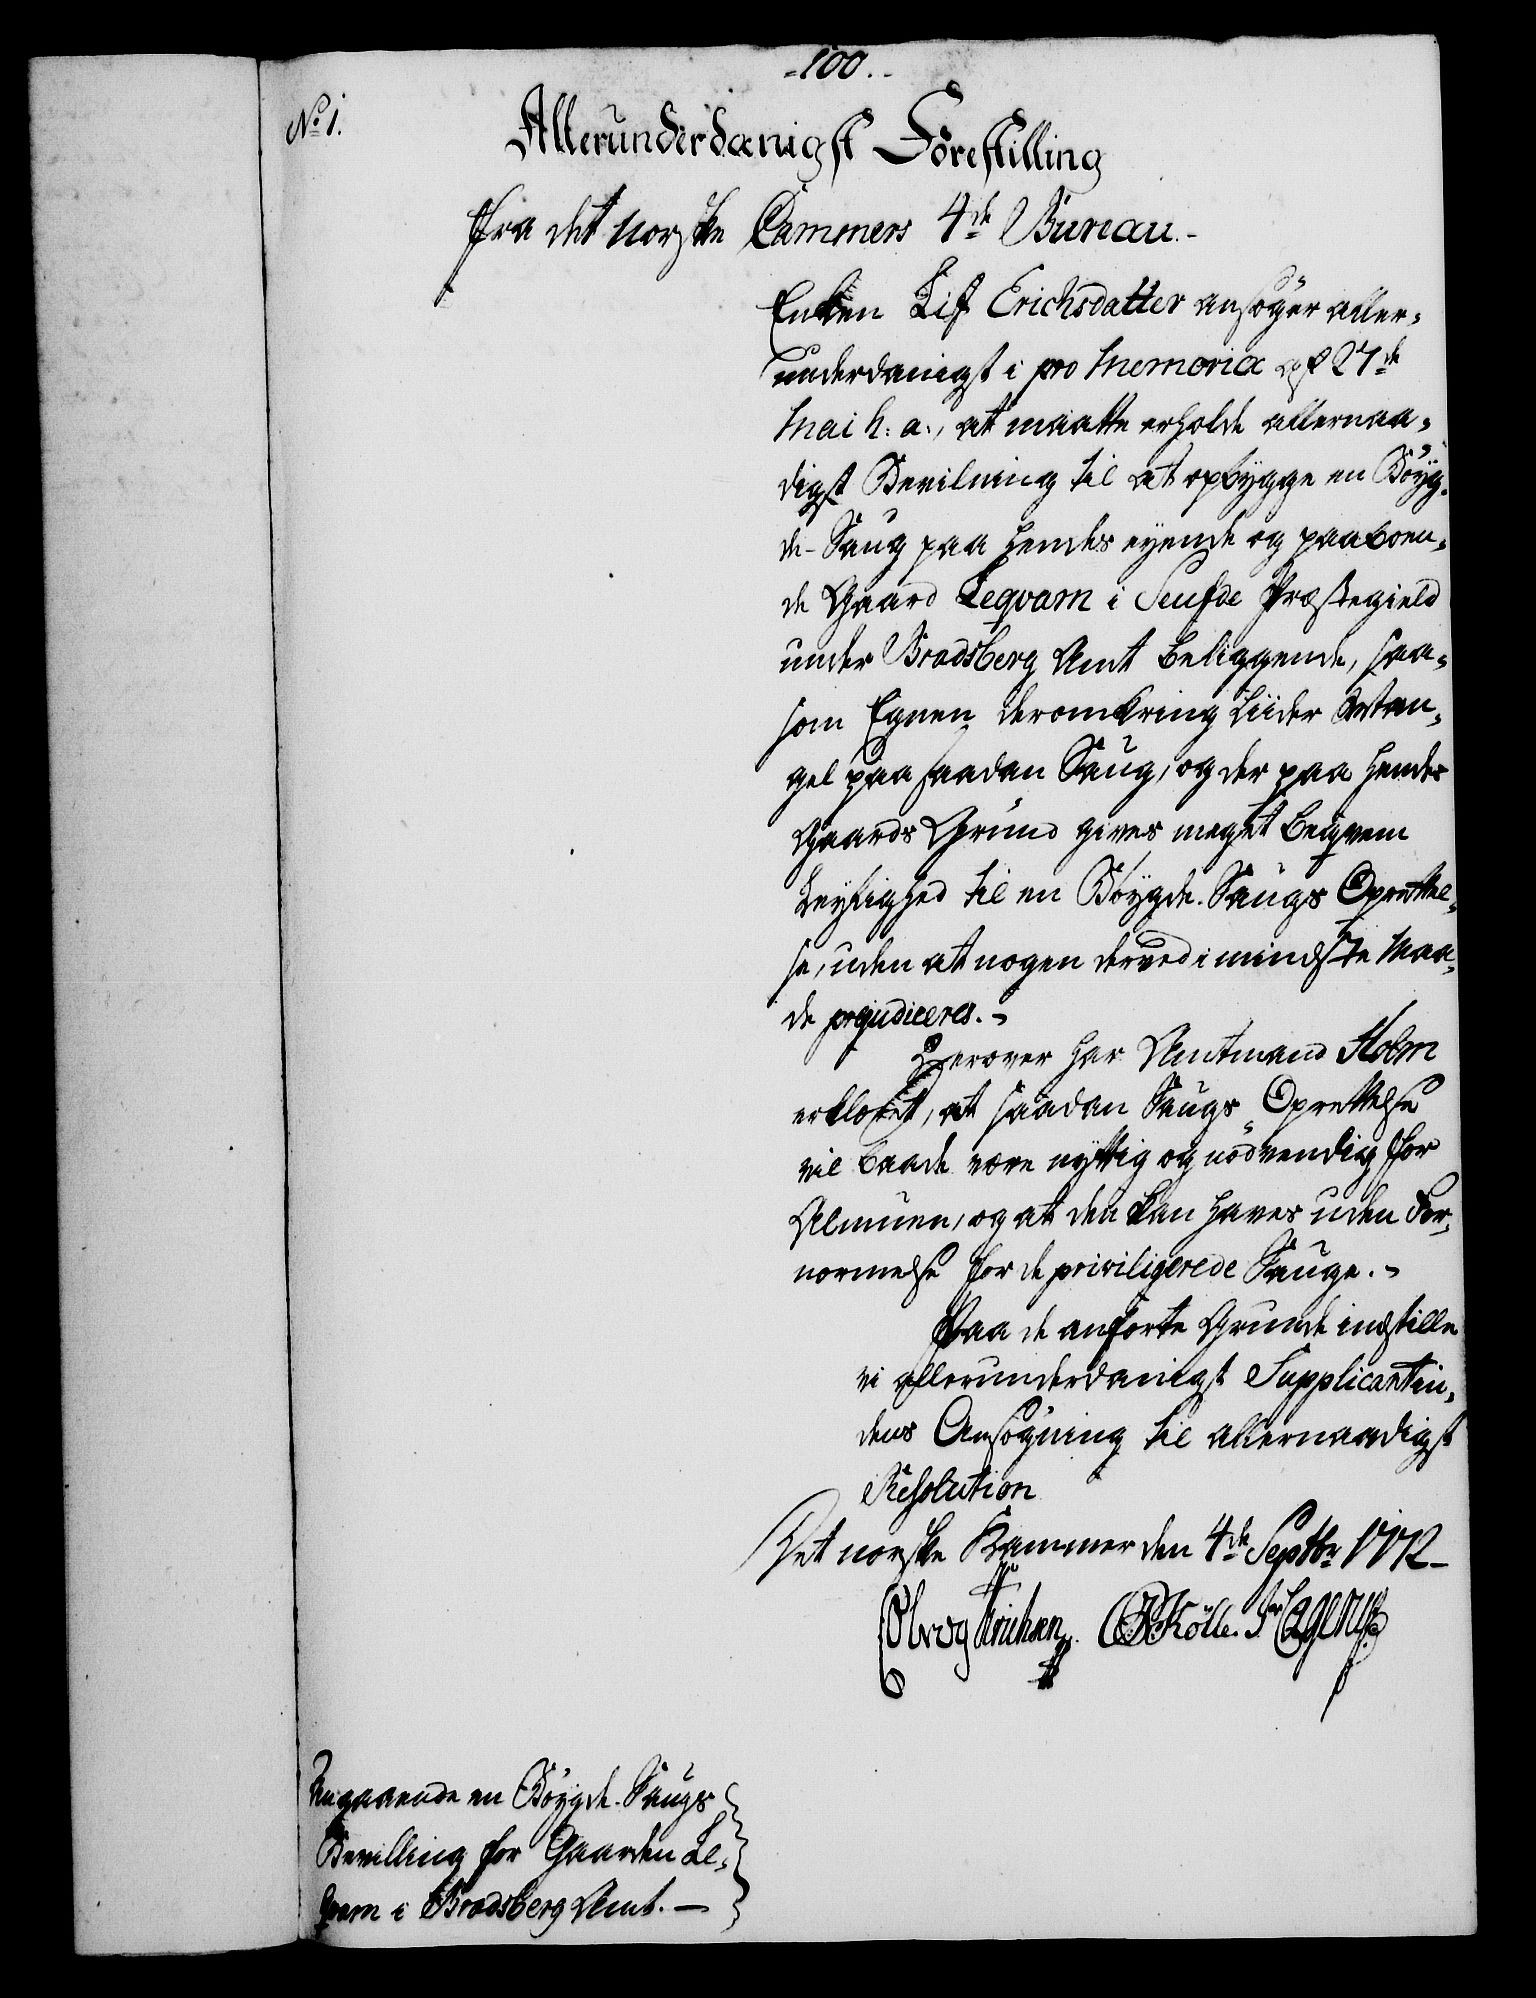 -100.-
No 1.
Allerunderdanigst Forestilling
fra det norske Cammers 4de Bureau.-
Enken Lif Erichsdatter ansøger aller-
underdanigst i pro Memoria af 27de
Mai h: a:, at maatte erholde allernaa-
digst Bevilning til at opbygge en Bøyg-
de-Saug paa hendes eyende og paaboen-
de Gaard Leqvam i Seufde Præstegield
under Bradsberg Amt beliggende, saa-
som Egnen deromkring liider Man-
gel paa saadan Saug, og der paa hendes
Gaards Grund gives meget beqvem
Leylighed til en Bøygde-Saugs Oprettel-
se, uden at nogen derved i mindste Maa-
de præjudiceres.-
Herover har Amtmand Holm
erklæret, at saadan Saugs Oprettelse
vil baade være nyttig og nødvendig for
Almuen, og at den kan haves uden For-
nærmelse for de priviligerede Sauge.-
Paa de anførte Grunde indstille
vi allerunderdanigst Supplicantin-
dens Ansøgning til allernaadigst
Resolution
Det norske Kammer den 4de Septbr 1772-
Angaaende en Bøygde-Saugs
Bevilling for Gaarden Le-
qvam i Bradsberg Amt.-